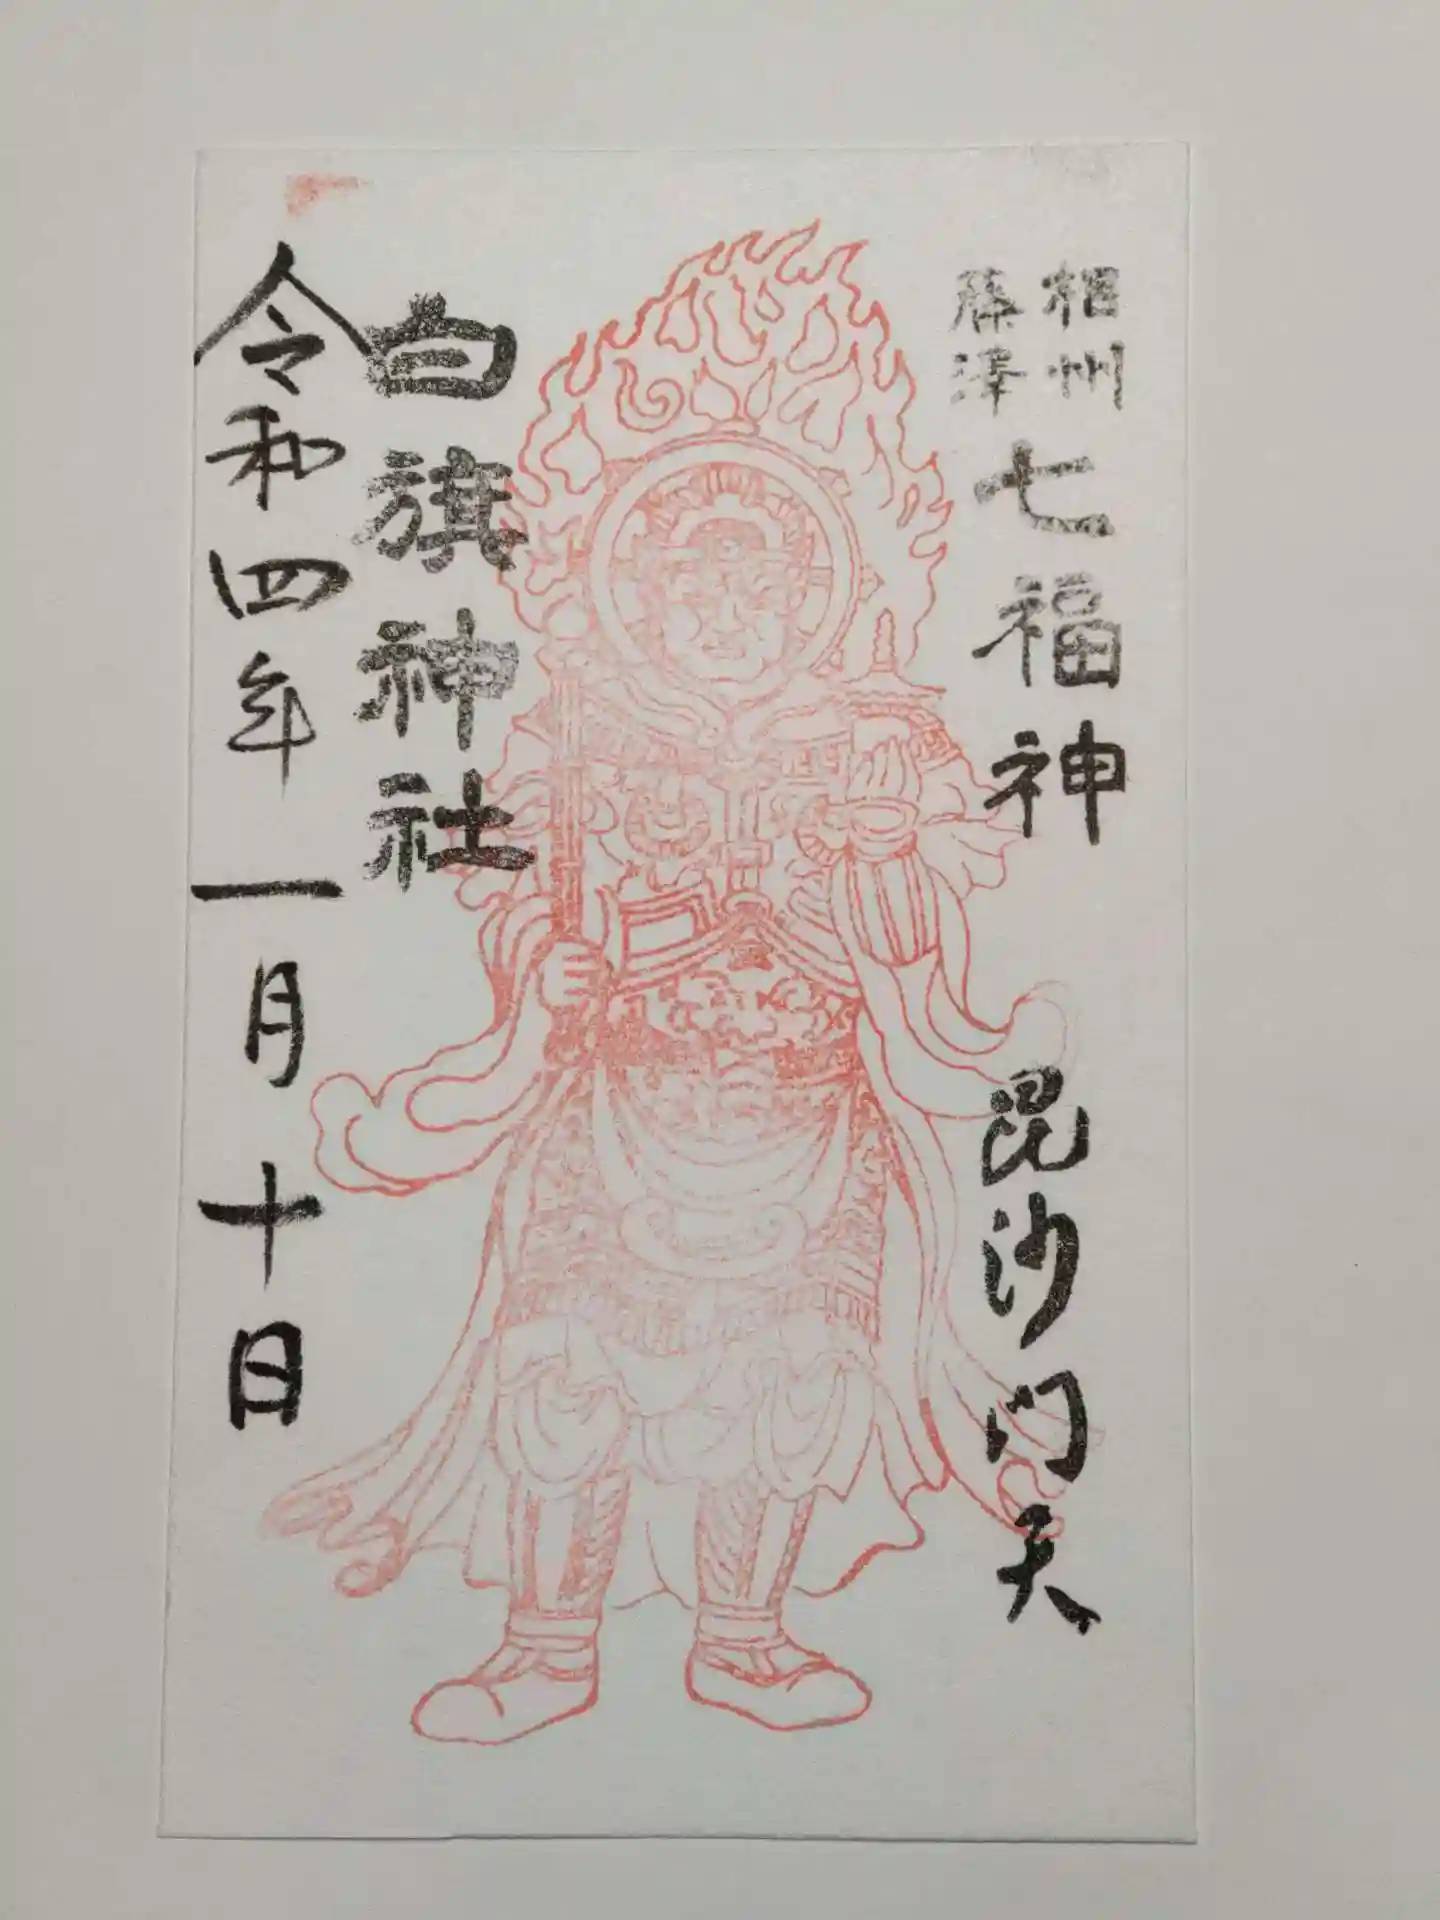 相州
藤澤
七福神　毘沙门天
白旗神社
令和四年一月十日